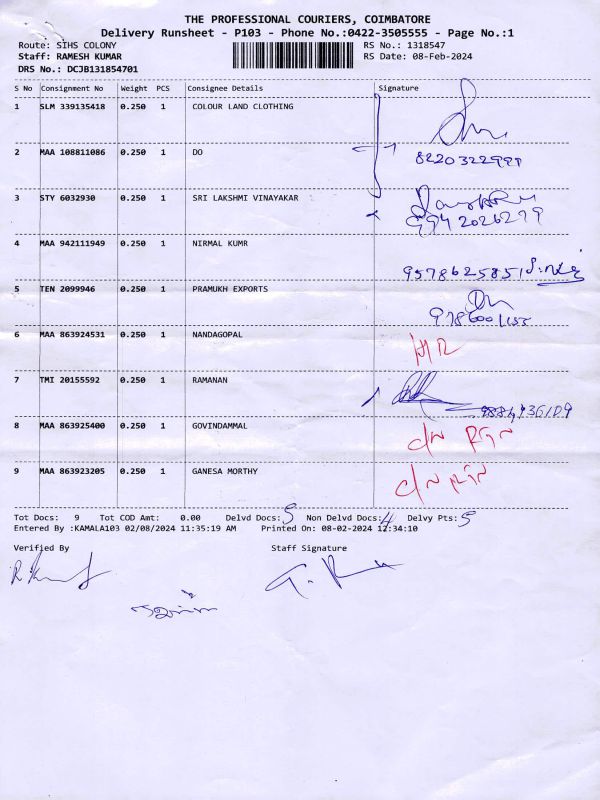 THE PROFESSIONAL COURIERS, COIMBATORE
Delivery Runsheet - P103 - Phone No.:0422-3505555 - Page No.:1
Route: SIHS COLONY
RS No.: 1318547
Staff: RAMESH KUMAR
RS Date: 08-Feb-2024
DRS No.: DCJB131854701
S No Consignment No Weight PCS Consignee Details Signature
1 SLM 339135418 0.250 1 COLOUR LAND CLOTHING
2 MAA 108811086 0.250 1 DO
3 STY 6032930 0.250 1 SRI LAKSHMI VINAYAKAR
9942026279
4 MAA 942111949 0.250 1 NIRMAL KUMR
9578625851
5 TEN 2099946 0.250 1 PRAMUKH EXPORTS
6 MAA 863924531 0.250 1 NANDAGOPAL
7 TMI 20155592 0.250 1 RAMANAN
8 MAA 863925400 0.250 1 GOVINDAMMAL
9 MAA 863923205 0.250 1 GANESA MORTHY
Tot Docs: 9 Tot COD Amt: 0.00 Delvd Docs: 5 Non Delvd Docs: 4 Delvy Pts: 5
Entered By :KAMALA103 02/08/2024 11:35:19 AM Printed On: 08-02-2024 12:34:10
Verified By Staff Signature